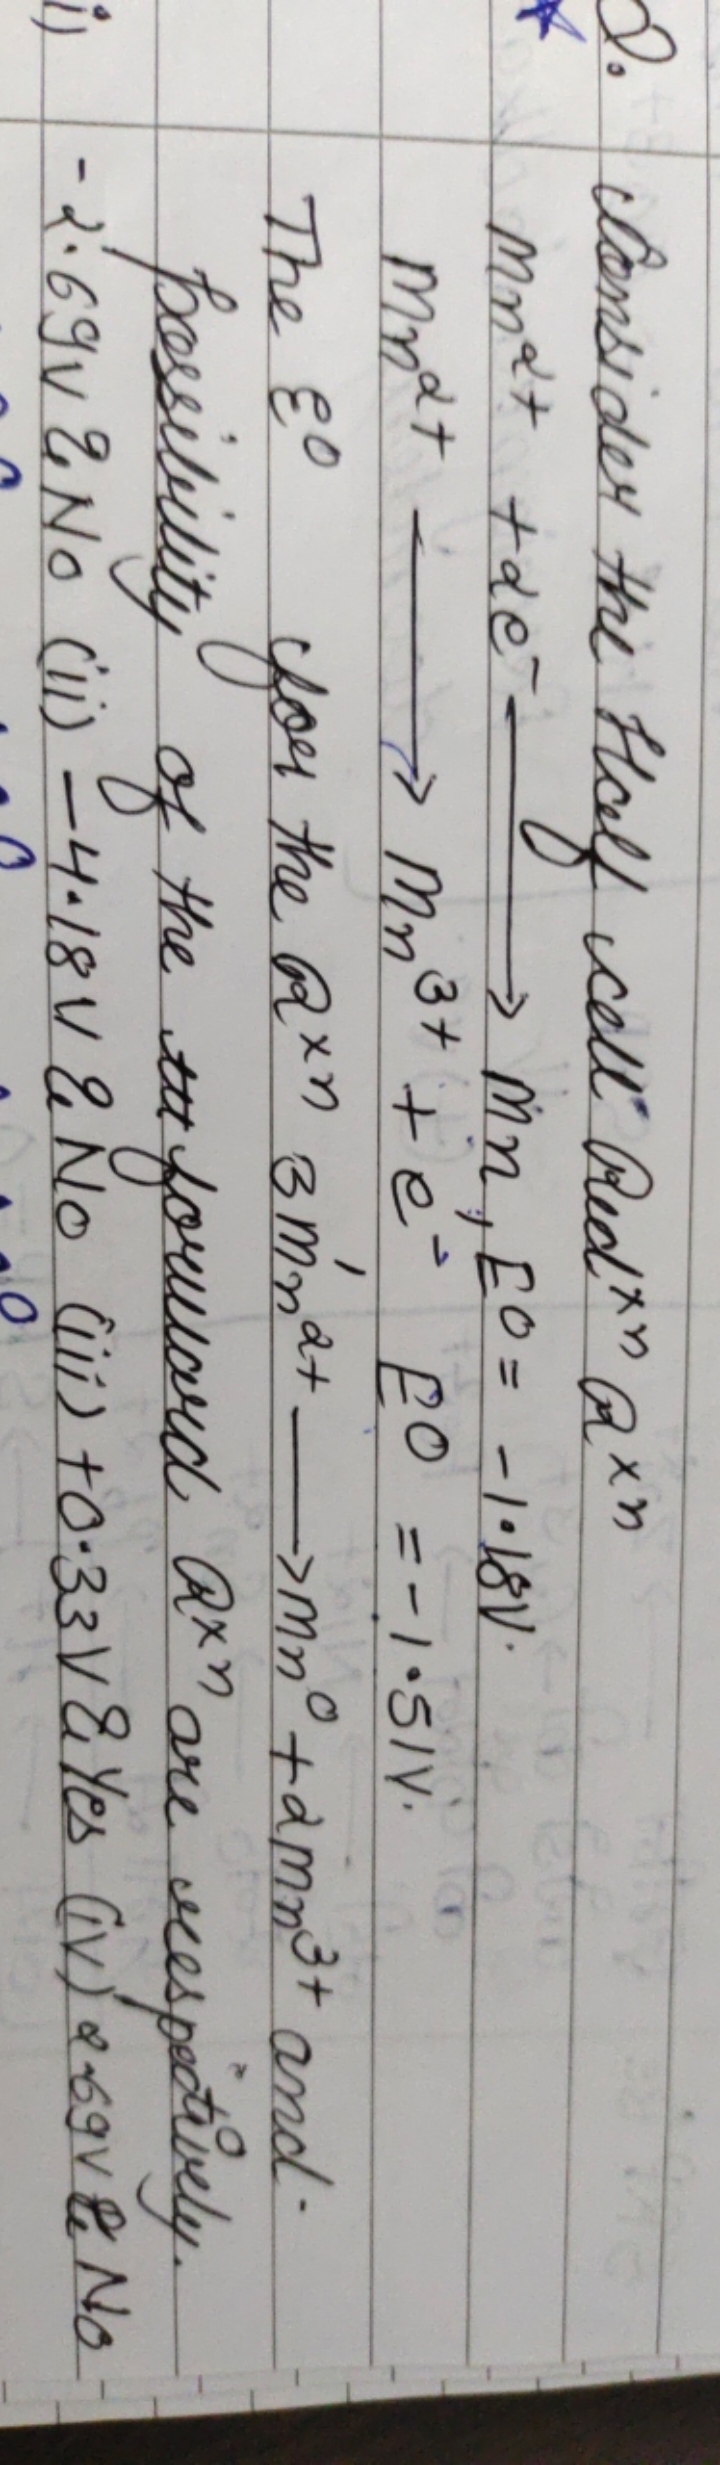 Q. Consider the Half cell Red^xn R^xn
Mn²⁺ + 2e⁻ ⟶ Mn, E⁰ = -1.18V.
Mn²⁺ ⟶ Mn³⁺ + e⁻ E⁰ = -1.51V.
The E⁰ for the R^xn 3Mn²⁺ ⟶ Mn⁰ + 2Mn³⁺ and.
possibility of the forward R^xn are respectively.
i) -2.69V & No (ii) -4.18V & No (iii) +0.33V & Yes (iv) 2.69V & No